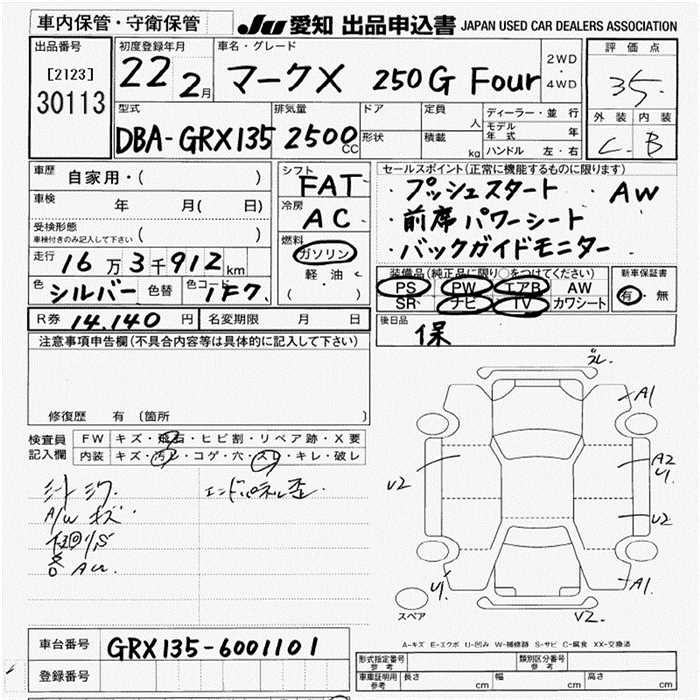 車内保管・守衛保管
JU 愛知 出品申込書 JAPAN USED CAR DEALERS ASSOCIATION
出品番号
[2123]
30113
初度登録年月
22 2月
車名・グレード
マークX 250G Four
2WD
・
4WD
評価点
3.5
外装 内装
C B
型式
DBA-GRX135
排気量
2500 CC
ドア
形状
定員
人
積載
kg
ディーラー・並行
モデル年式 年
ハンドル 左・右
車歴 自家用・( )
車検 年 月( 日)
受検形態
車検付きのみ記入して下さい ( )
走行 16万3千912km
色 シルバー 色替 色コード 1F7
シフト
FAT
冷房
AC
燃料
ガソリン
・
軽油
( )
セールスポイント(正常に機能するものに限ります)
・プッシュスタート ・AW
・前席パワーシート
・バックガイドモニター
装備品(純正品に限り○をつけてください)
PS PW エアB AW
SR ナビ TV カワシート
新車保証書
有・無
R券 14.140円 名変期限 月 日
後日品
保
注意事項申告欄(不具合内容等は具体的に記入して下さい)
修復歴 有 (箇所 )
検査員
記入欄
FW キズ・飛石・ヒビ割・リペア跡・X要
内装 キズ・汚レ・コゲ・穴・スレ・キレ・破レ
A/W キズ
A1
A2
U1
U2
U2
U1
A1
U2
スペア
A-キズ E-エクボ U-凹み W-補修跡 S-サビ C-腐食 XX-交換済
車台番号 GRX135-6001101
登録番号
型式指定番号
参考
類別区分番号
参考
車庫証明用
参考
長さ cm 幅 cm 高さ cm